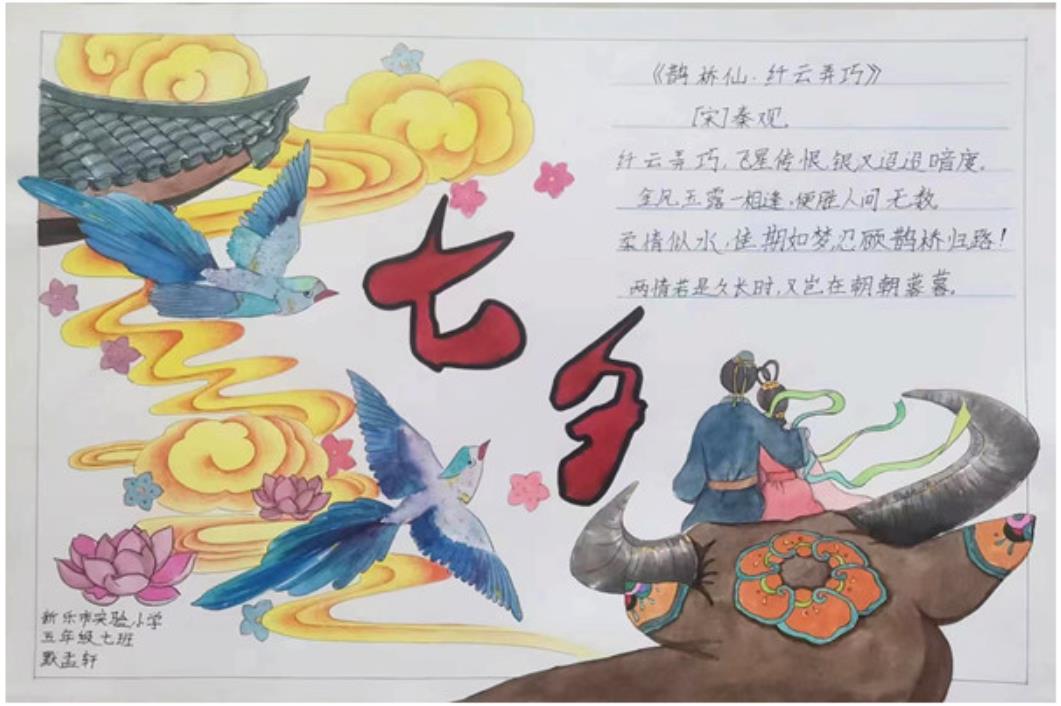 《鹊桥仙·纤云弄巧》
[宋]秦观
纤云弄巧,飞星传恨,银汉迢迢暗度。
金风玉露一相逢,便胜人间无数
柔情似水,佳期如梦,忍顾鹊桥归路!
两情若是久长时,又岂在朝朝暮暮。
七夕
新乐市实验小学
五年级七班
默孟轩